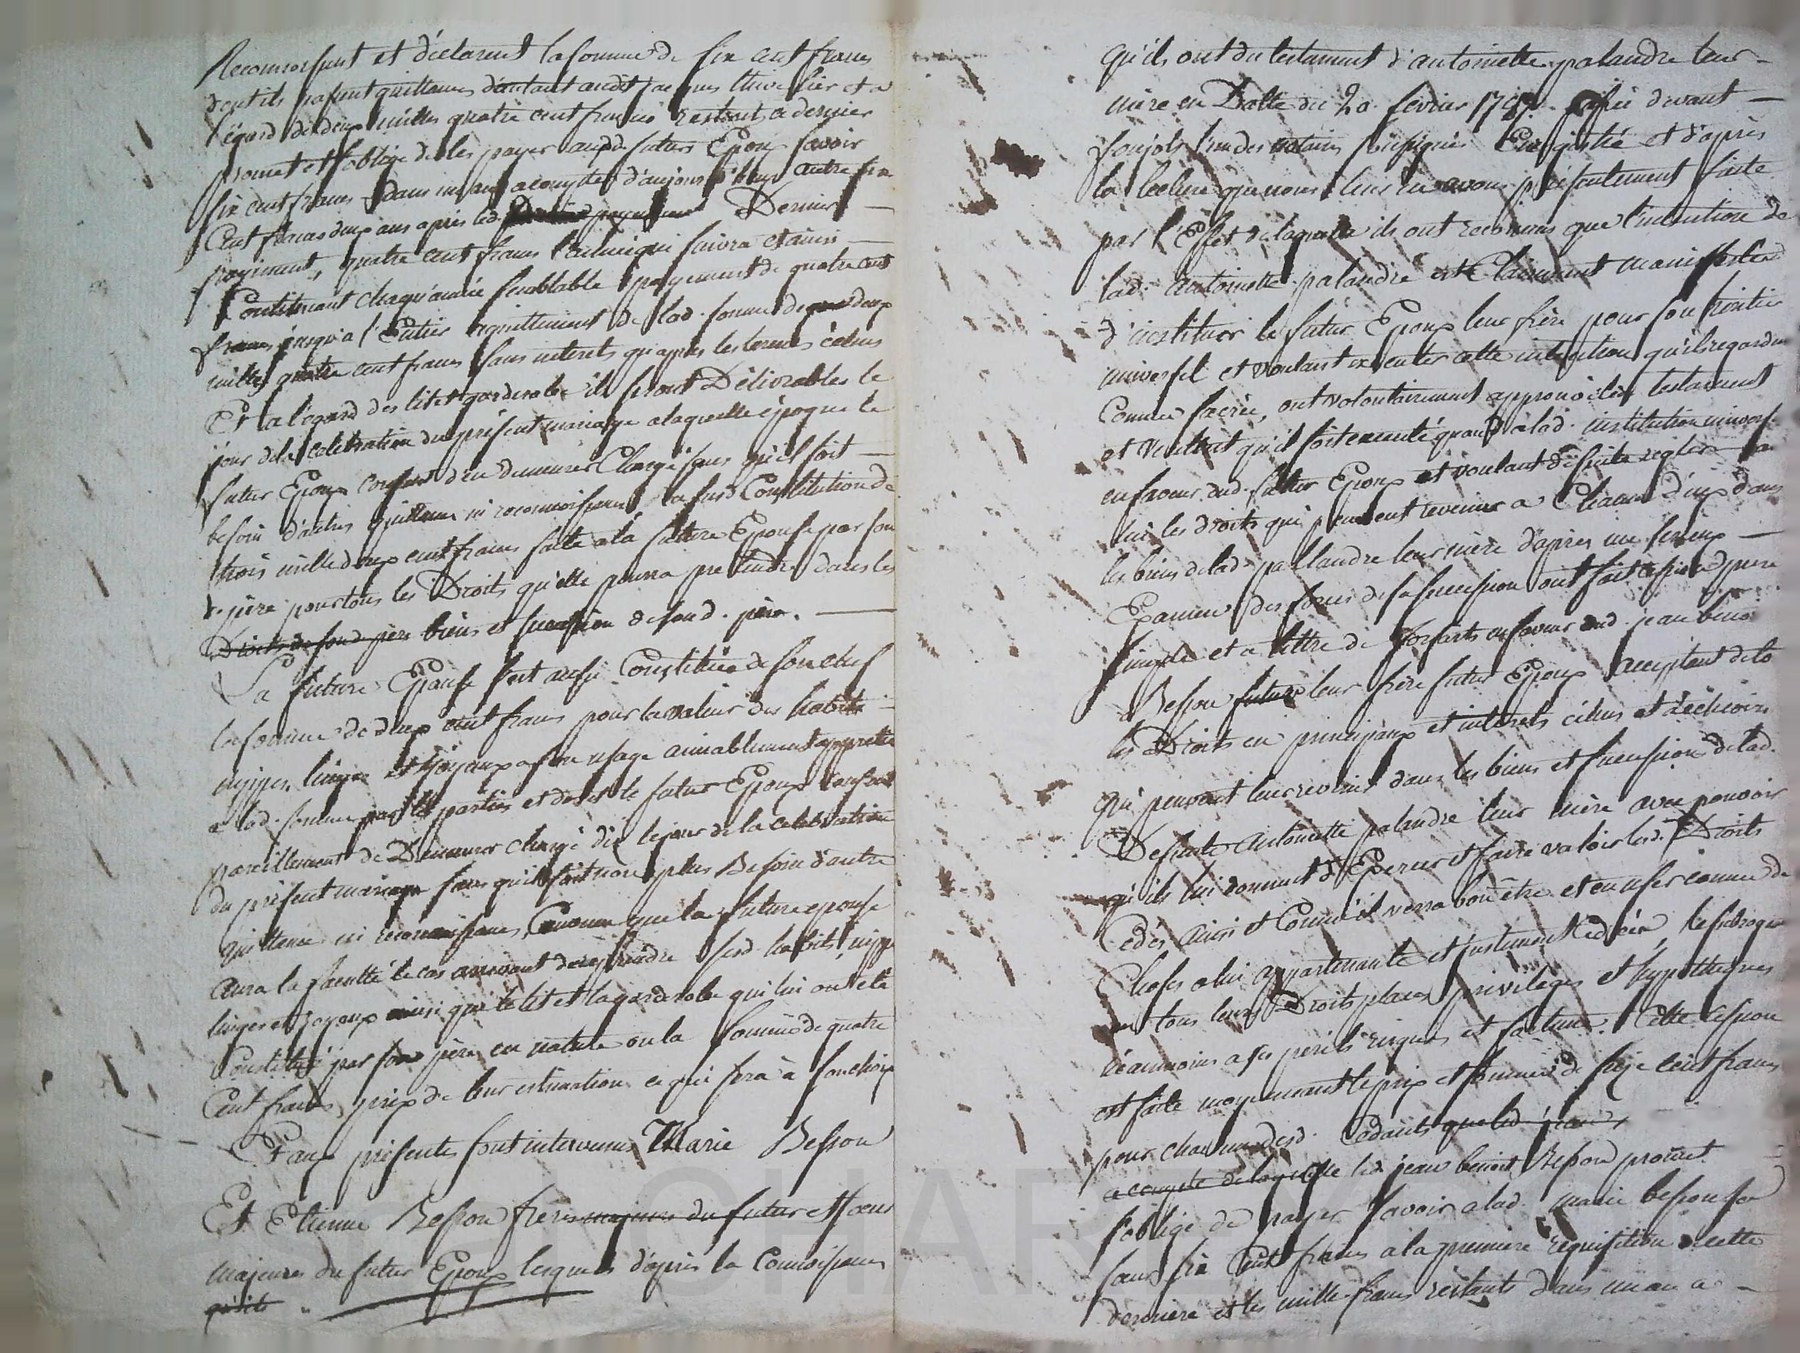 Reconnoissent et déclarent la somme de six cent francs
dont ils passent quittance d'autant audt jacques thivelier et a
l'égard des deux milles quatre cent francs restants ce dernier
promet et s'oblige de les payer auxd futurs Epoux savoir
six cent francs dans un an a compter d'aujourd'huy autre six
Cent francs deux ans après led. Dernier
payement, quatre cent francs l'année qui suivra et ainsi
Continuant chaqu'année semblable payement de quatre cent
francs jusqu'a l'Entier acquittement de lad. somme de deux
mille quatre cent francs sans interets qu'apprès les termes échus
Et a l'egard des lit et garderobe ils seront Délivrables le
jour de la celebration du présent mariage a laquelle époque le
futur Epoux consent d'en demeurer Chargé sans qu'il soit
besoin d'autres quittance ni reconnoissance lasusd Constitution de
trois mille deux cent francs faite a la future Epouse par son
d. père pour tous les Droits qu'elle pourra pretendre dans les
Droits de sond. père biens et succession de sond. père.
La future Epouse s'est aussi Constituée de son chef
la somme de deux cent francs pour la valeur des habits
nippes, linges et joyaux a son usage aimablement appretiés
a lad. somme par les parties et dont le futur Epoux consent
pareillement de Demeurer chargé dès le jour de la celebration
du présent mariage sans qu'il soit non plus Besoin d'autre
quittance ni reconnoissance, Convenu que la future epouse
aura la faculté le cas arrivant de reprendre sesd habits, nippes
linges et joyaux ainsi que le lit et la garderobe qui lui ont été
Constitué par son père en nature ou la somme de quatre
Cent francs, prix de leur estimation ce qui sera à son choix
Et aux présentes sont intervenus Marie Besson
Et Etienne Besson frères majeures du futur et sœur
majeures du futur Epoux lesquels d'après la Connoissance
qu'ils
qu'ils ont du testament d'antoinette palandre leur
mère en Datte du 20 fevrier 1787. passé devant
l'un des notaires soussignés Enregistré et d'après
la lecture que nous leur en avons présentement faite
par l'Effet de laquelle ils ont reconnus que l'intention de
lad. antoinette palandre est Clairement manifestée
d'instituer le futur Epoux leur frère pour son héritier
universel et voulant executer cette intention qu'ils regardent
Comme sacrée, ont volontairement approuvé led testament
et veulent qu'il soit executé quand a lad. institution univers.
en faveur dud. futur Epoux et voulant de suite regler
lui les droits qui peuvent revenir a Chacun d'eux dans
les biens de lad. pallandre leur mère d'après un serieux
Examen des forces de sa succession ont fait cession pure
simple et a tittre de forfaits en faveur dud. jean benoit
Besson futur leur frère futur Epoux acceptant de tous
les Droits en principaux et interets échus et à échoir
qui peuvent leur revenir dans les biens et succession de lad.
Defunte antoinette palandre leur mère avec pouvoir
qu'ils lui donnent d'Exercer et faire valoir lesd. Droits
Cédés ainsi et Comme il verra bon être et en user comme de
Choses a lui appartenante et justement cédée, le subroger
en tous leurs Droits places privilèges et hypotheques
néanmoins a ses périls risques et fortune. Cette Cession
est faite moyennant le prix et somme de seize cent francs
pour chacun desd. Cédants que led jean
a compte de laquelle led. jean benoit Besson promet
s'oblige de payer savoir a lad. marie besson sa
sœur six Cent francs a la premiere requisition de cette
dernière et les mille francs restants dans un an a